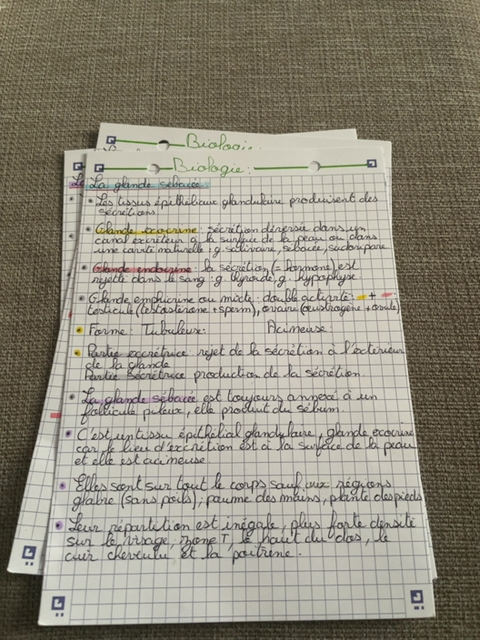 Biologie
Biologie:
Le La glande sébacée:
Les tissus épithéliaux glandulaire produisent des
sécrétions.
Glande exocrine: sécrétion déversée dans un
canal excréteur g la surface de la peau ou dans
une cavité naturelle: g salivaire, sébacée, sudoripare
Glande endocrine: la sécrétion (= hormone) est
rejetée dans le sang: g thyroïde, g hypophyse
Glande amphicrine ou mixte: double activité: +
testicule (testostérone + sperm), ovaire (oestrogène + ovule)
Forme: Tubuleuse: Acineuse
Partie excrétrice: rejet de la sécrétion à l'extérieur
de la glande
Partie sécrétrice production de la sécrétion.
La glande sébacée est toujours annexé à un
follicule pileux, elle produit du sébum.
C'est un tissu épithélial glandulaire, glande exocrine
car le lieu d'excrétion est à la surface de la peau
et elle est acineuse
Elles sont sur tout le corps sauf aux régions
glabre (sans poils); paume des mains, plante des pieds
Leur répartition est inégale, plus forte densité
sur le visage, zone T, le haut du dos, le
cuir chevelu et la poitrine.